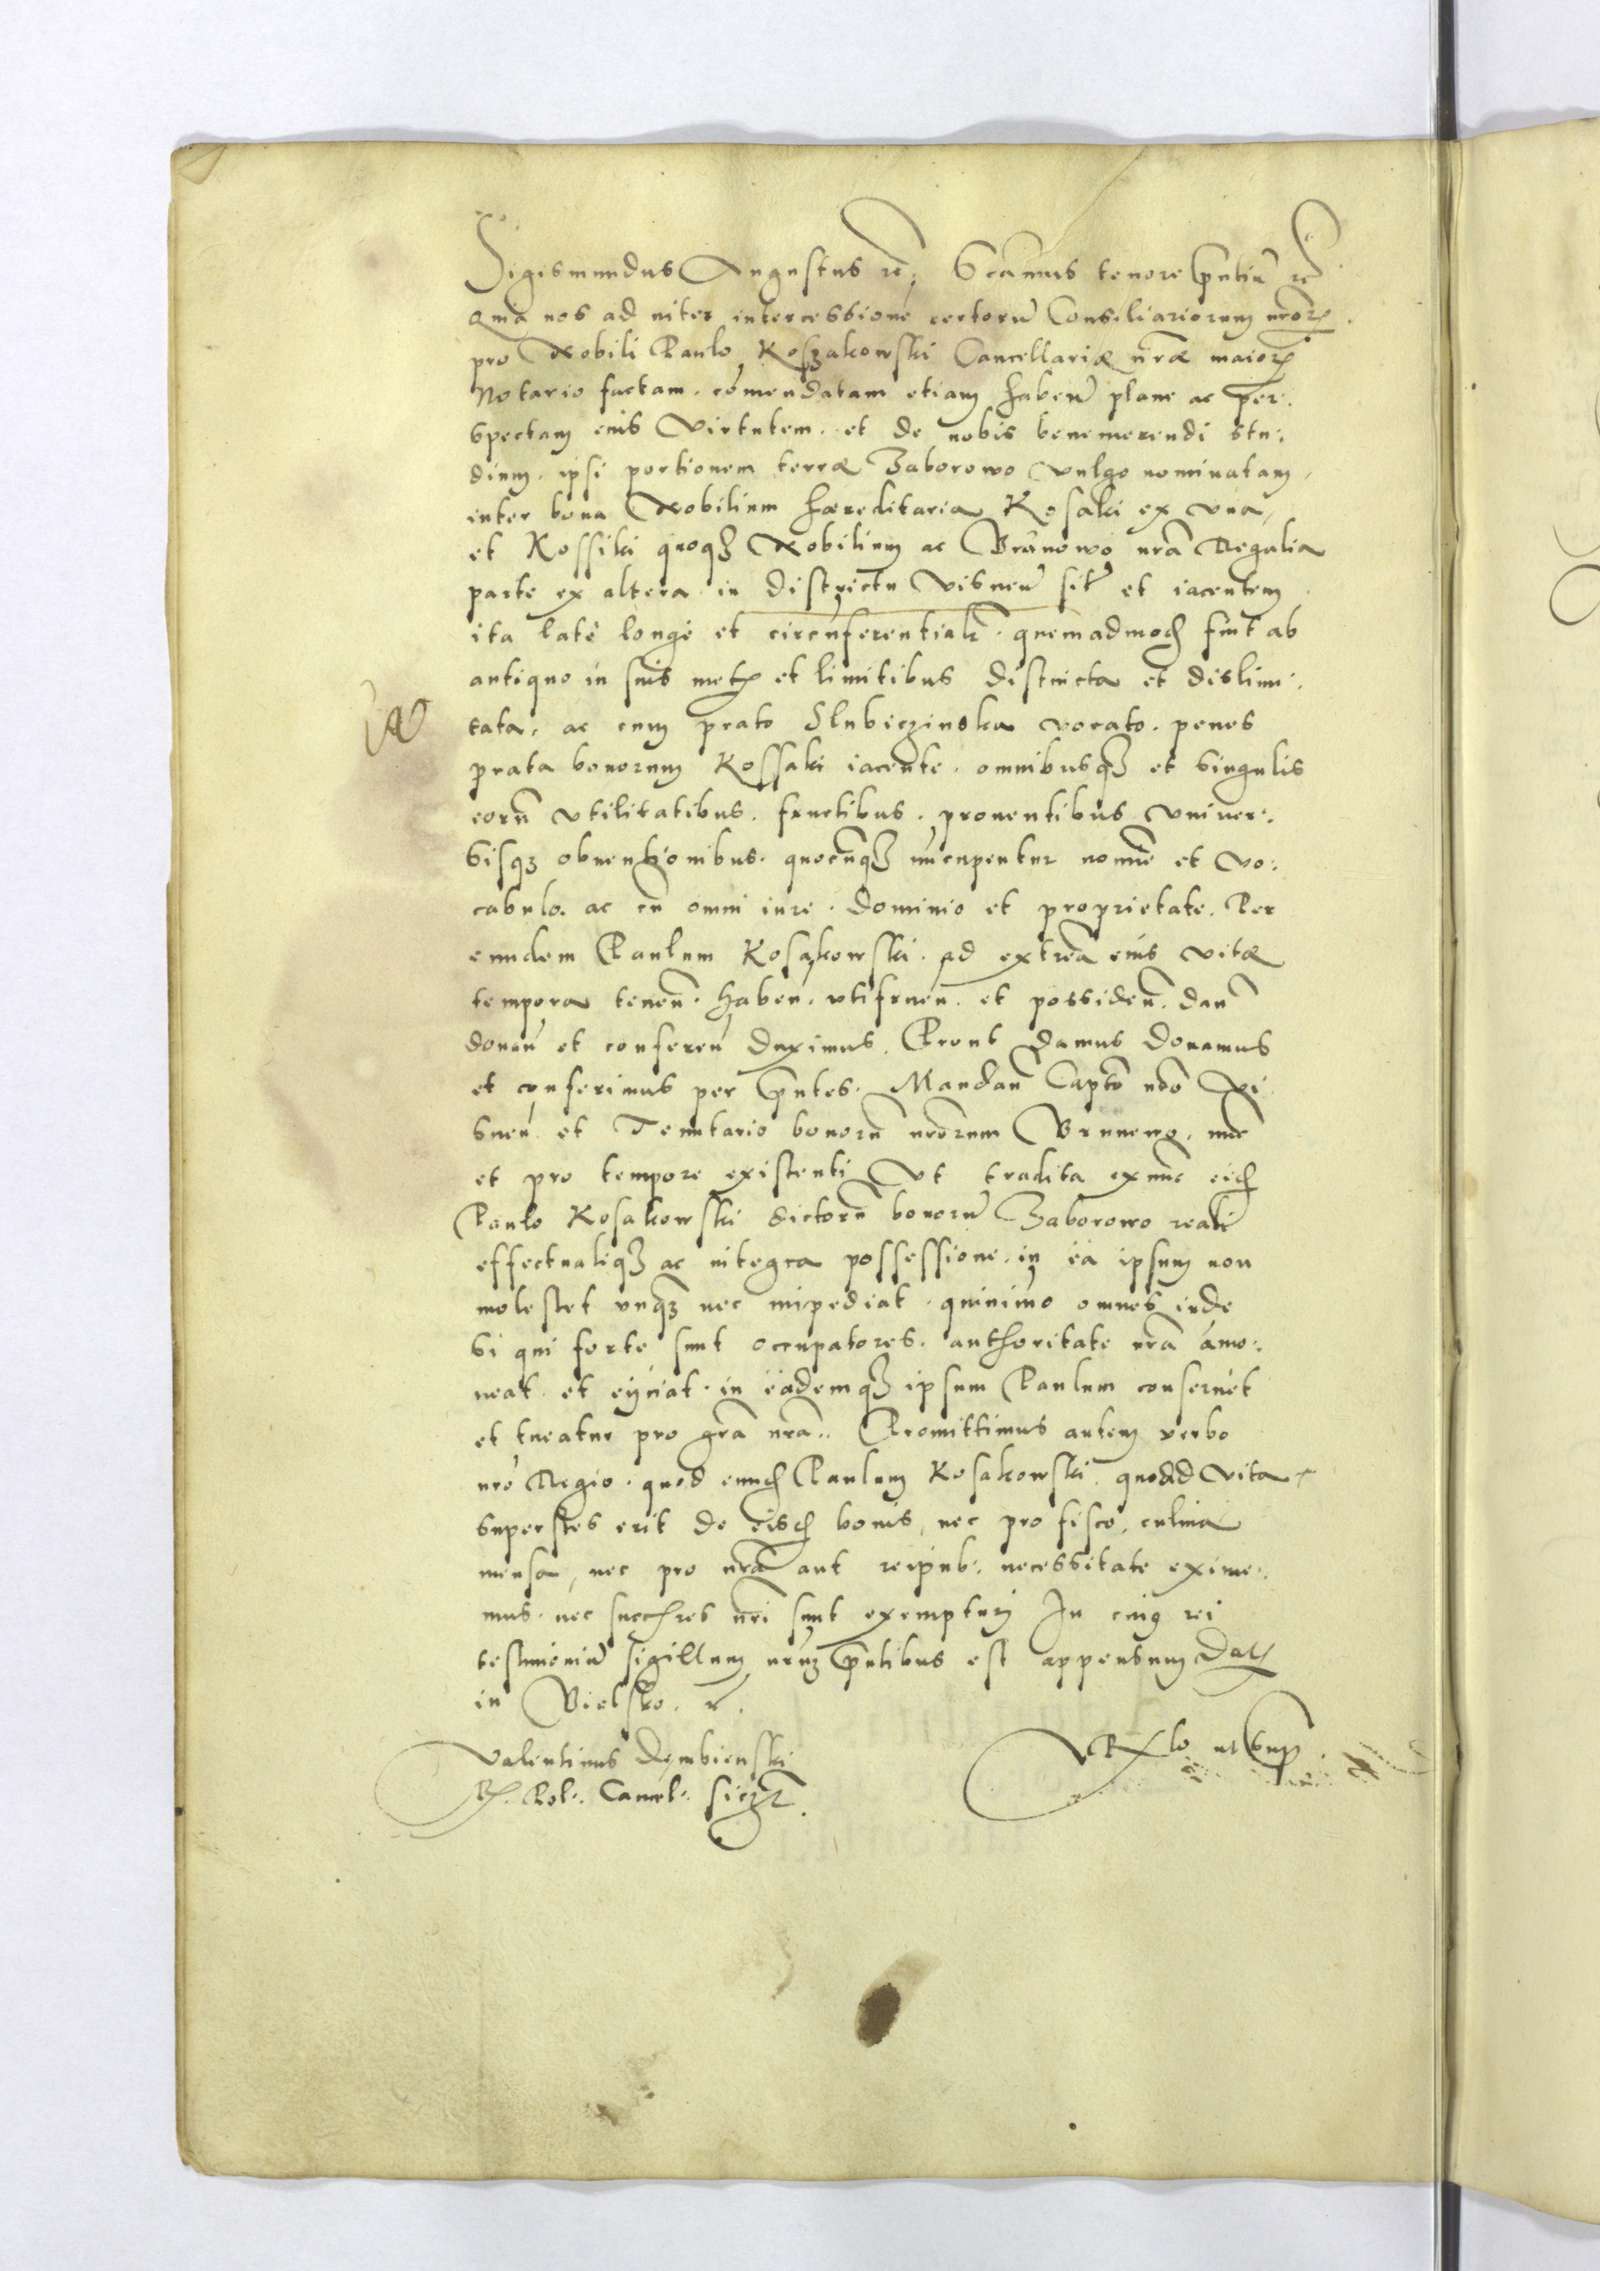 Sigismundus Augustus rc: Scamus tenore pntiu rc
Quia nos ad inter intercessione certoru Consiliarioruum nror
pro Nobili Paulo Koszakowski Cancellariæ nræ maior
Notario factam. comendatam etiam haben plane ac per:
spectam eius virtutem. et de nobis benemerendi stu:
dium. ipsi portionem terræ Zaborowo vulgo nominatam,
inter bona Nobilium hæreditaria Kosaki ex una,
et Kossiki quoqz Nobilium ac Branowo nra Regalia
parte ex altera in districtu Visnen sit et iacentem
ita late longe et circunferentialr. quemadmod sunt ab
antiquo in suis met et limitibus distincta et dislimi:
tata, ac cum prato Slubiczinska vocato. penes
prata bonorum Kossaki iacente. omnibusqz et singulis
eoru utilitatibus. fructibus. prouentibus univer:
sisqz obuentionibus. quocunqz nuncupentur nomine et vo:
cabulo. ac cu omni iure. dominio et proprietate. Per
eundem Paulum Kosakowski. ad extrea eius vitæ
tempora tenen. haben. utifruen. et possiden. dan
donan et conferen duximus. Prout damus donamus
et conferimus per pntes. Mandan Capto nro Vi
snen. et Tenutario bonoru nrorum Brunewo, nunc
et pro tempore existenti Ut tradita exnunc eid
Paulo Kosakowski dictoru bonoru Zaborowo reali
effectualiqz ac integra possessione. in ea ipsum non
molestet unqz nec impediat. quinimo omnes inde
si qui forte sunt occupatores. authoritate nra amo:
ueat. et eijciat. in eademqz ipsum Paulum conseruet
et tueatur pro gra nra.. Promittimus autem verbo
nro Regio. quod eund Paulum Kosakowski. quoad vita
superstes erit de eisd bonis, nec pro fisco, culina
mensa, nec pro nra aut reipub: necessitate exime:
mus. nec succhres nri sunt exempturi In cuig rei
testimoniu sigillum nrum pntibus est appensum Dat
in Bielsko. rc.
Valentinus Dembienski
R. Pol:. Cancel:. sszt
Rlo ut supr.